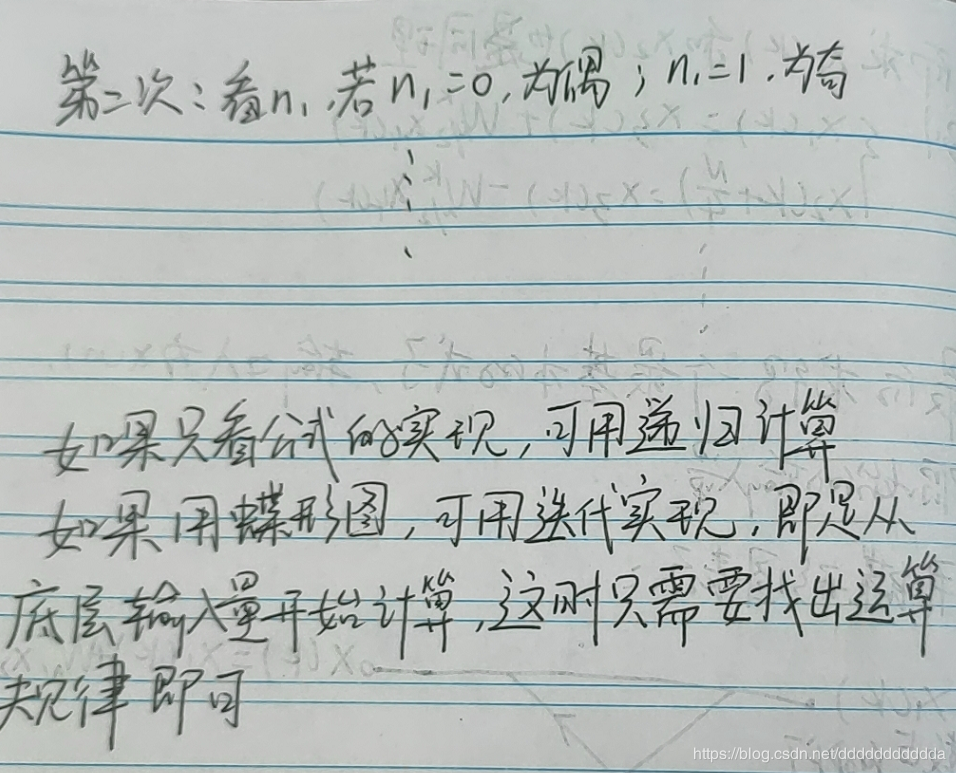 第二次：看n₁,若n₁=0,为偶；n₁=1,为奇
如果只看公式的实现,可用递归计算
如果用蝶形图,可用迭代实现,即是从
底层输入量开始计算,这时只需要找出运算
规律即可
https://blog.csdn.net/dddddddddddda